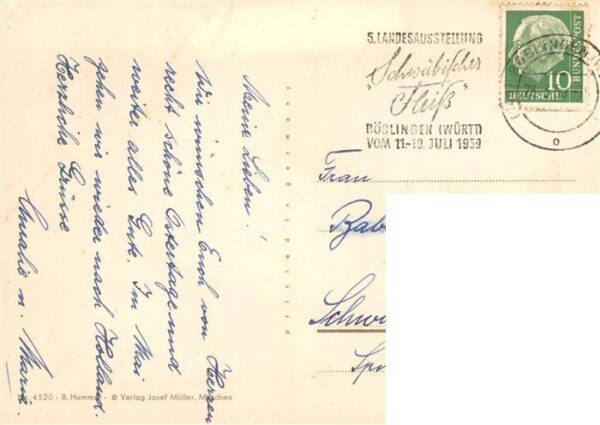 Meine Lieben!
Wir wünschen Euch von Herzen
recht schöne Ostertage und
weiter alles Gute. Im Mai
gehn wir wieder nach Holland.
Herzliche Grüsse
Amalie u. Marie.
Nr. 4520 - B. Hummel - © Verlag Josef Müller, München
5. LANDESAUSSTELLUNG
"Schwäbischer
Fleiß"
BÖBLINGEN (WÜRTT)
VOM 11.-19. JULI 1959
10
DEUTSCHE BUNDESPOST
Frau